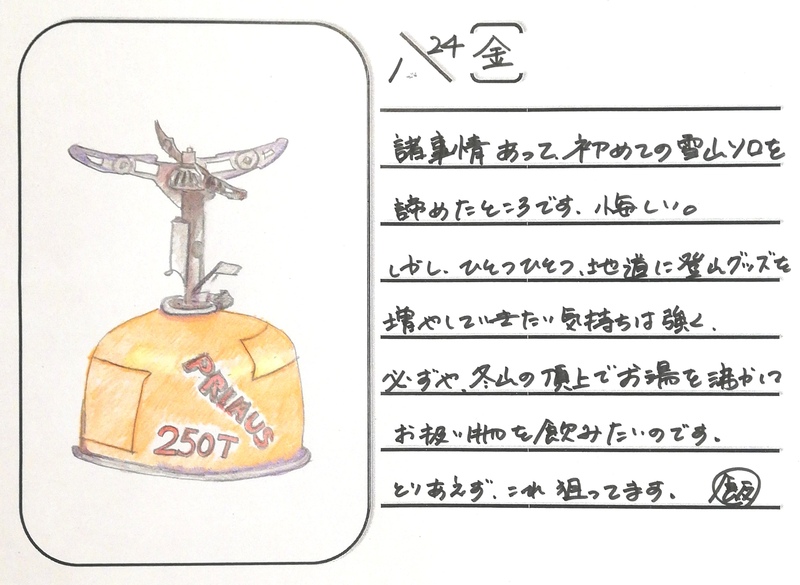 1/24 [金]
諸事情あって、初めての雪山ソロを
諦めたところです。悔しい。
しかし、ひとつひとつ、地道に登山グッズを
増やしていきたい気持ちは強く、
必ずや、冬山の頂上でお湯を沸かして
お扱い物を飲みたいのです。
とりあえず、これ狙ってます。 飯
PRIAUS
250T